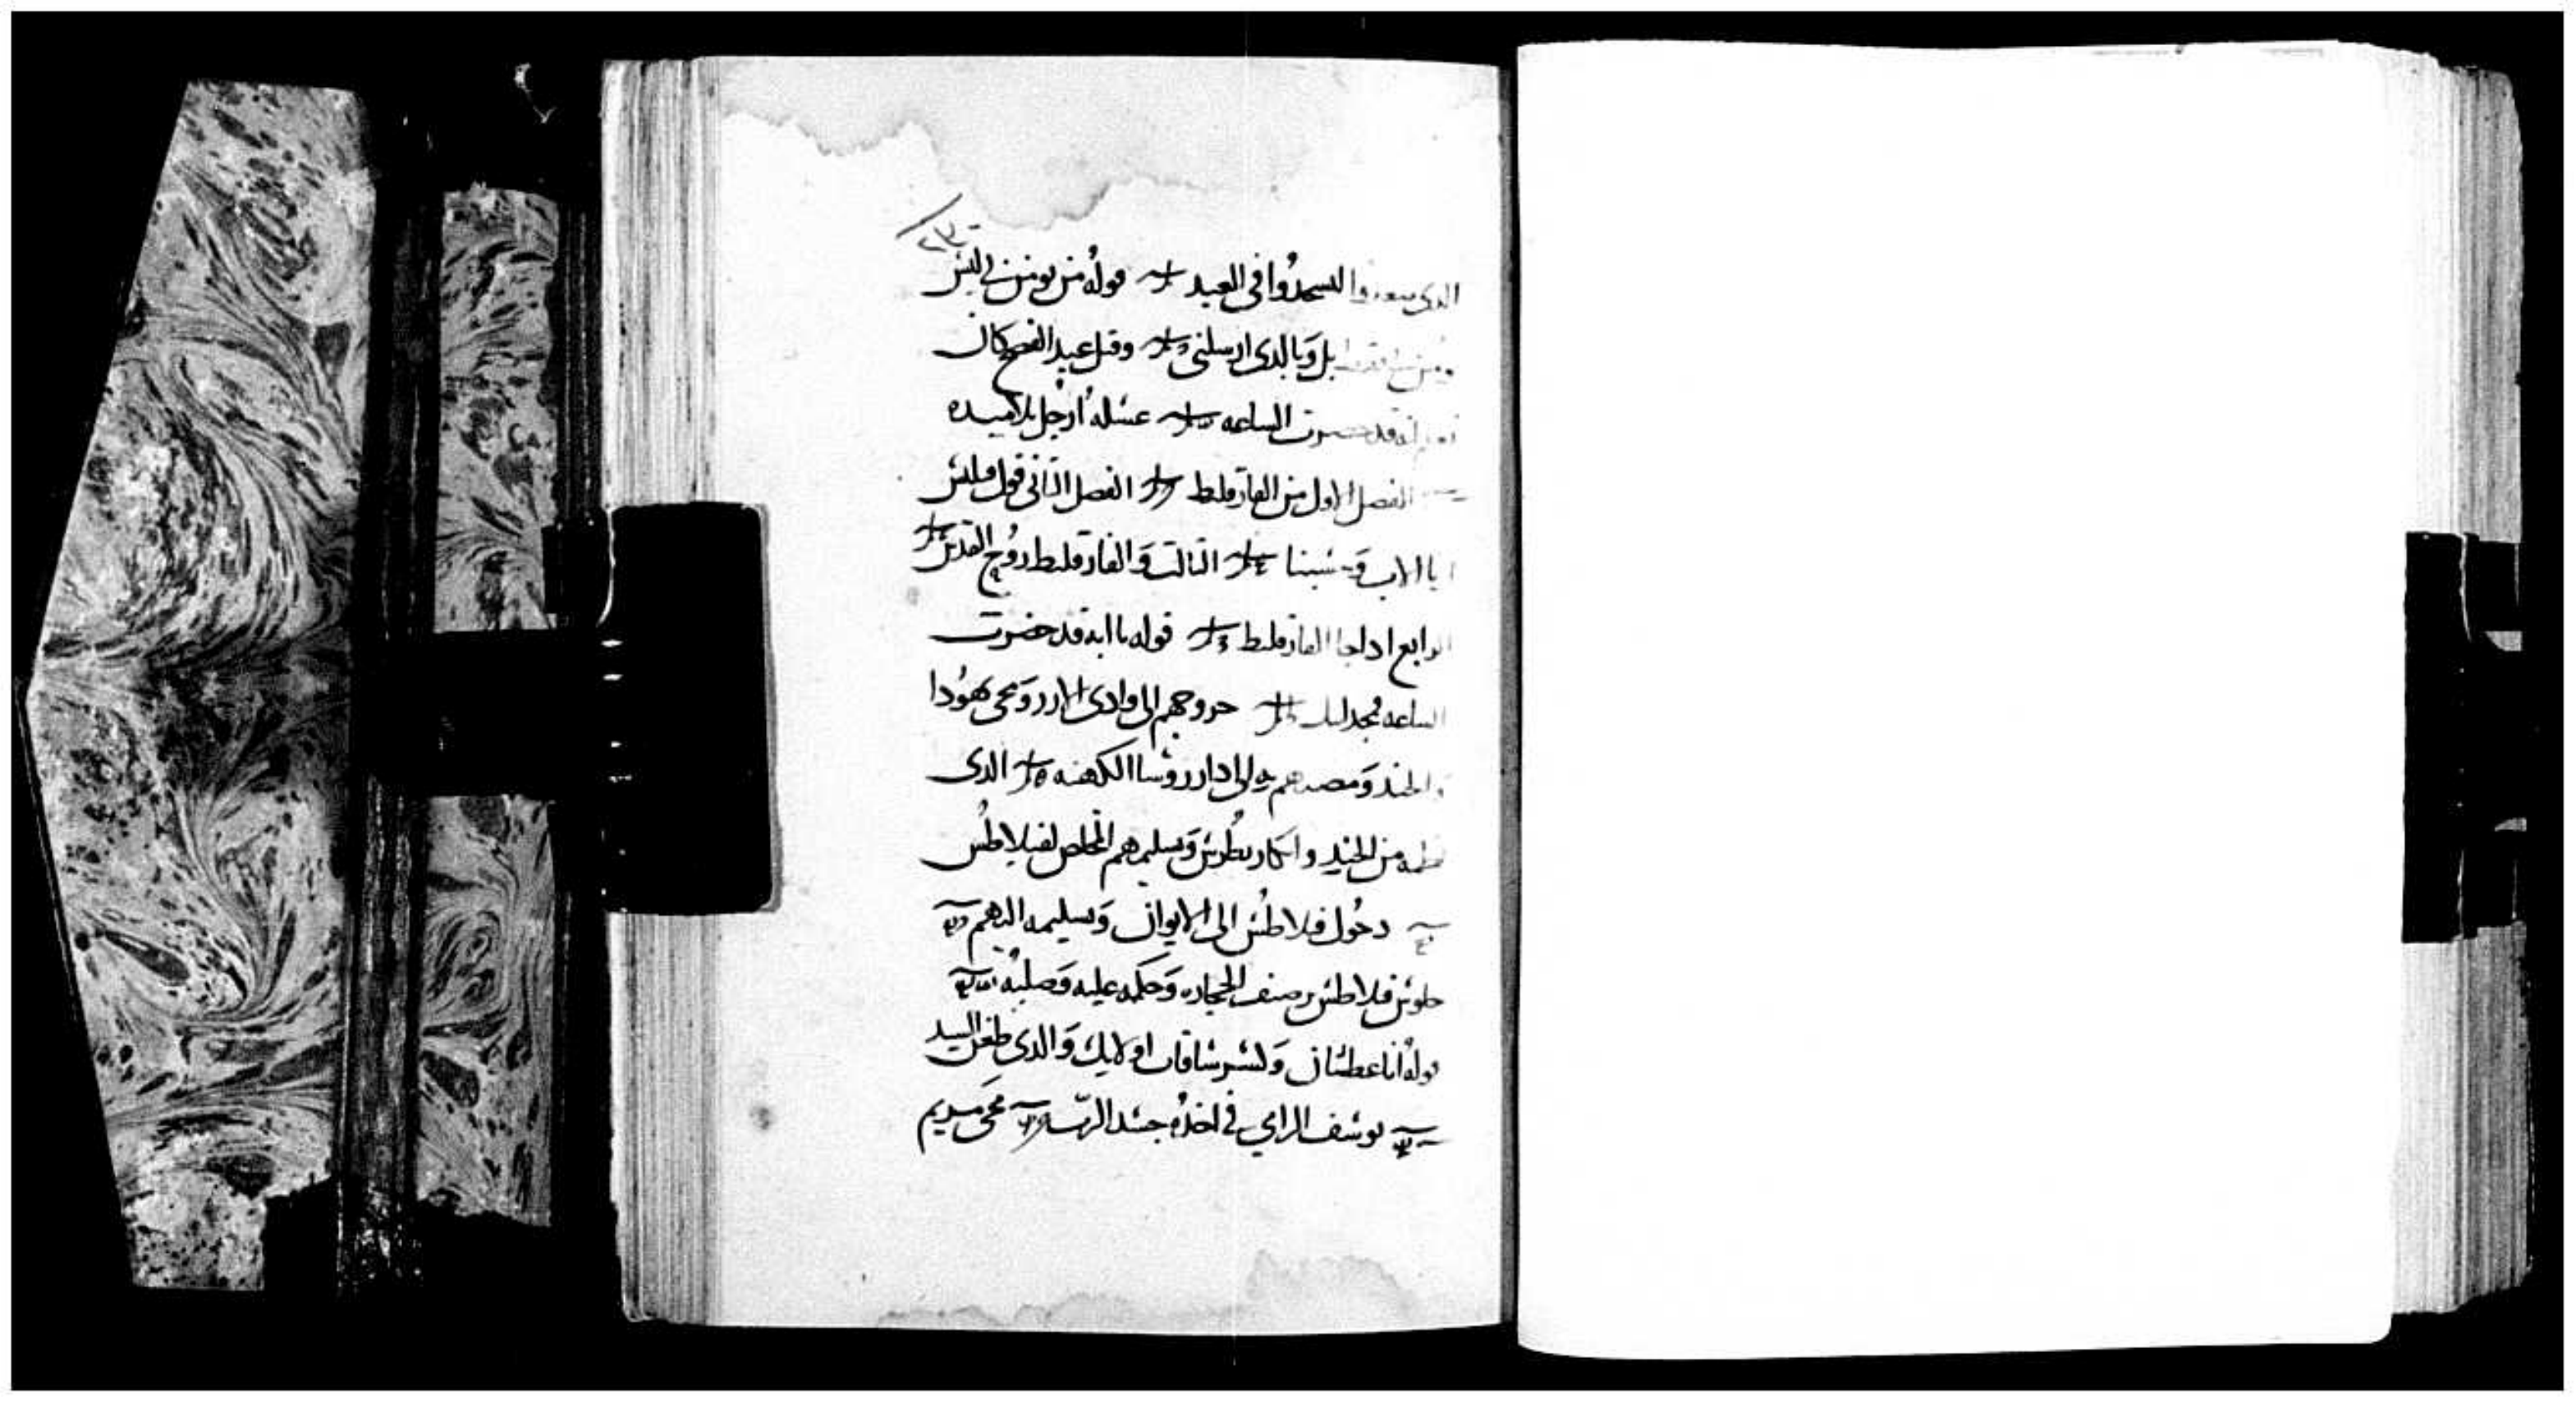 الدى صعدوا ليسجدوا فى العيد قوله من يومن بى ليس
بل وبالدى ارسلنى وقبل عيد الفصح كان
قد حضرت الساعه غسله ارجل تلاميده
الفصل الاول من الفارقليط الفصل الثانى قول فيلبس
الاب وحسبنا الثالث والفارقليط روح القدس
الرابع ادا جا الفارقليط قوله يا ابه قد حضرت
الساعه مجد ابنك خروجهم الى وادى الارز ومجى يهودا
والجند ومصيرهم به الى دار روسا الكهنه الدى
لطمه من الجند وانكار بطرس وتسليمهم المخلص لفيلاطس
دخول فلاطس الى الايوان وتسليمه اليهم
جلوس فلاطس برصيف الحجاره وحكمه عليه وصلبه
قوله انا عطشان وكسر ساقات اوليك والدى طعن السيد
يوسف الرامي في اخذه جسد الرب مجى مريم